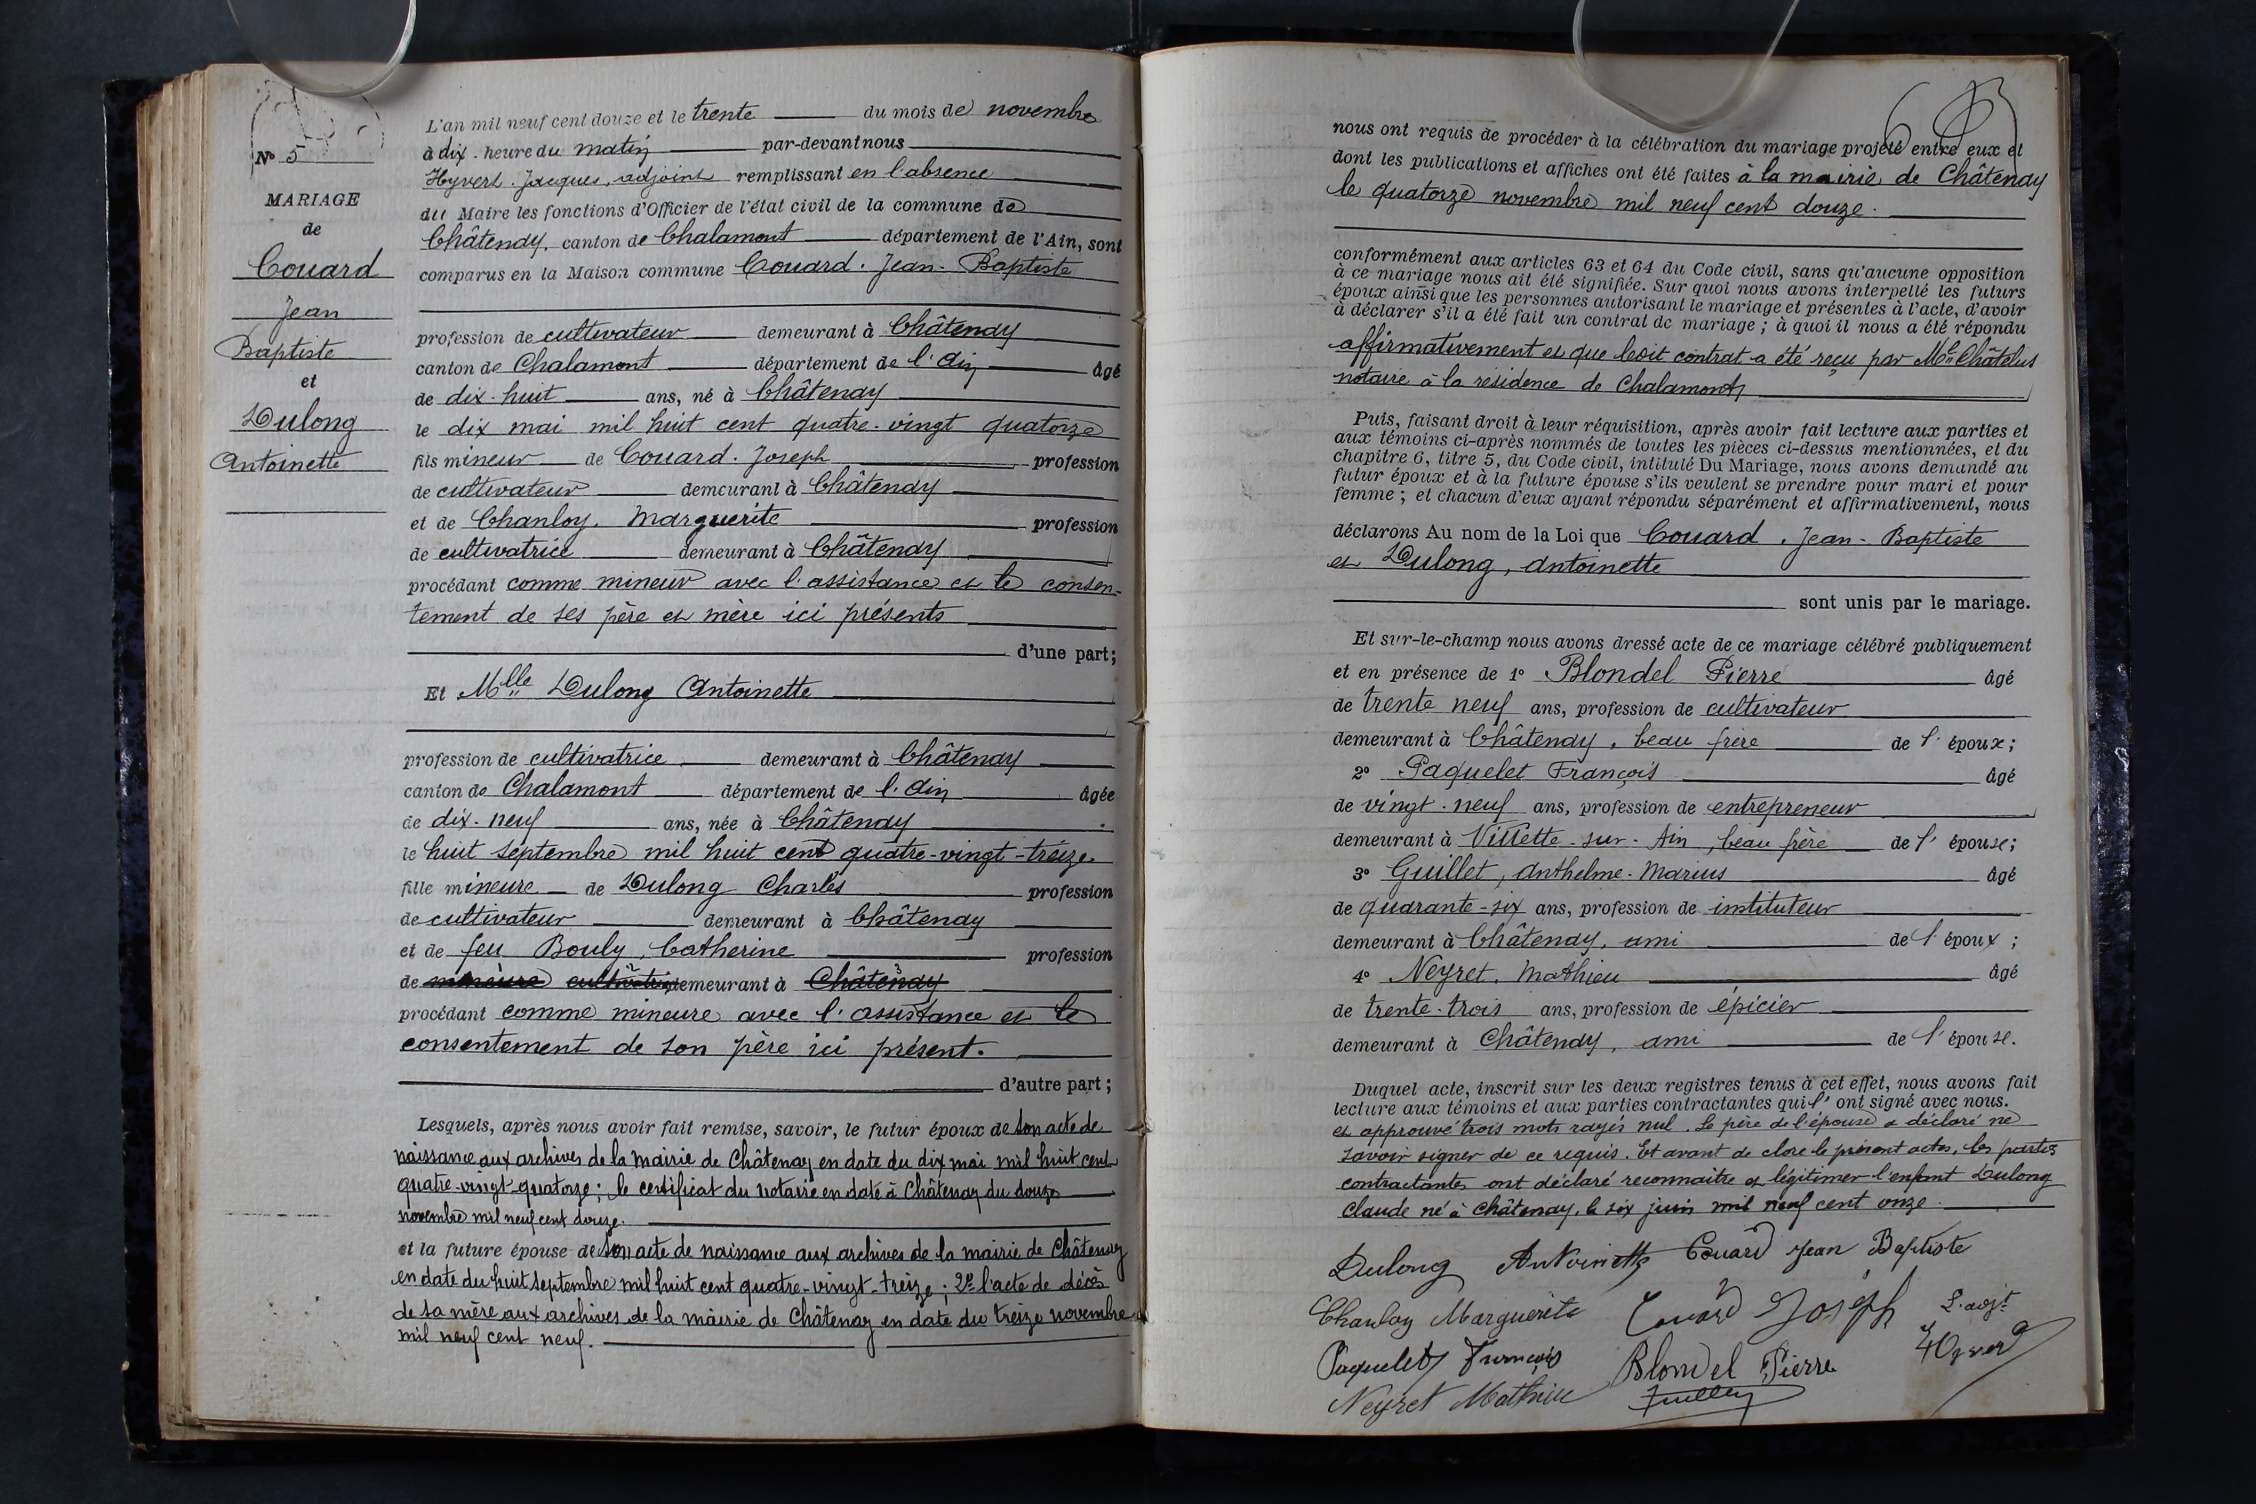 N° 5
MARIAGE
de
Couard
Jean
Baptiste
et
Dulong
Antoinette
L'an mil neuf cent douze et le trente du mois de novembre
à dix heure du matin par-devant nous
Hyvert Jacques, adjoint remplissant en l'absence
du Maire les fonctions d'Officier de l'état civil de la commune de
Châtenay, canton de Chalamont département de l'Ain, sont
comparus en la Maison commune Couard Jean-Baptiste
profession de cultivateur demeurant à Châtenay
canton de Chalamont département de l'Ain âgé
de dix-huit ans, né à Châtenay
le dix mai mil huit cent quatre-vingt quatorze
fils mineur de Couard Joseph profession
de cultivateur demeurant à Châtenay
et de Chanloy Marguerite profession
de cultivatrice demeurant à Châtenay
procédant comme mineur avec l'assistance et le consen-
tement de ses père et mère ici présents
d'une part;
Et Mlle Dulong Antoinette
profession de cultivatrice demeurant à Châtenay
canton de Chalamont département de l'Ain âgée
de dix-neuf ans, née à Châtenay
le huit septembre mil huit cent quatre-vingt-treize.
fille mineure de Dulong Charles profession
de cultivateur demeurant à Châtenay
et de feu Bouly, Catherine profession
de cultivatrice demeurant à Châtenay
procédant comme mineure avec l'assistance et le
consentement de son père ici présent.
d'autre part;
Lesquels, après nous avoir fait remise, savoir, le futur époux de son acte de
naissance aux archives de la mairie de Châtenay en date du dix mai mil huit cent
quatre-vingt-quatorze; le certificat du notaire en date à Châtenay du douze
novembre mil neuf cent douze.
et la future épouse de son acte de naissance aux archives de la mairie de Châtenay
en date du huit septembre mil huit cent quatre-vingt-treize; 2° l'acte de décès
de sa mère aux archives de la mairie de Châtenay en date du treize novembre
mil neuf cent neuf.
nous ont requis de procéder à la célébration du mariage projeté entre eux et
dont les publications et affiches ont été faites à la mairie de Châtenay
le quatorze novembre mil neuf cent douze.
conformément aux articles 63 et 64 du Code civil, sans qu'aucune opposition
à ce mariage nous ait été signifiée. Sur quoi nous avons interpellé les futurs
époux ainsi que les personnes autorisant le mariage et présentes à l'acte, d'avoir
à déclarer s'il a été fait un contrat de mariage; à quoi il nous a été répondu
affirmativement et que ledit contrat a été reçu par Me Châtelus
notaire à la résidence de Chalamont
Puis, faisant droit à leur réquisition, après avoir fait lecture aux parties et
aux témoins ci-après nommés de toutes les pièces ci-dessus mentionnées, et du
chapitre 6, titre 5, du Code civil, intitulé Du Mariage, nous avons demandé au
futur époux et à la future épouse s'ils veulent se prendre pour mari et pour
femme; et chacun d'eux ayant répondu séparément et affirmativement, nous
déclarons Au nom de la Loi que Couard, Jean-Baptiste
et Dulong, Antoinette
sont unis par le mariage.
Et sur-le-champ nous avons dressé acte de ce mariage célébré publiquement
et en présence de 1° Blondel Pierre âgé
de trente neuf ans, profession de cultivateur
demeurant à Châtenay, beau frère de l'époux;
2° Paquelet François âgé
de vingt-neuf ans, profession de entrepreneur
demeurant à Villette-sur-Ain, beau frère de l'épouse;
3° Guillet, Anthelme-Marius âgé
de quarante-six ans, profession de instituteur
demeurant à Châtenay, ami de l'époux;
4° Neyret, Mathieu âgé
de trente-trois ans, profession de épicier
demeurant à Châtenay, ami de l'épouse.
Duquel acte, inscrit sur les deux registres tenus à cet effet, nous avons fait
lecture aux témoins et aux parties contractantes qui l'ont signé avec nous.
et approuvé trois mots rayés nul. Le père de l'épouse a déclaré ne
savoir signer de ce requis. Et avant de clore le présent actes, les parties
contractantes ont déclaré reconnaître et légitimer l'enfant Dulong
Claude né à Châtenay, le six juin mil neuf cent onze.
Dulong Antoinette Couard Jean Baptiste
Chanloy Marguerite Couard Joseph L'adjt
Paquelet François Blondel Pierre Hyvert
Neyret Mathieu Guillet